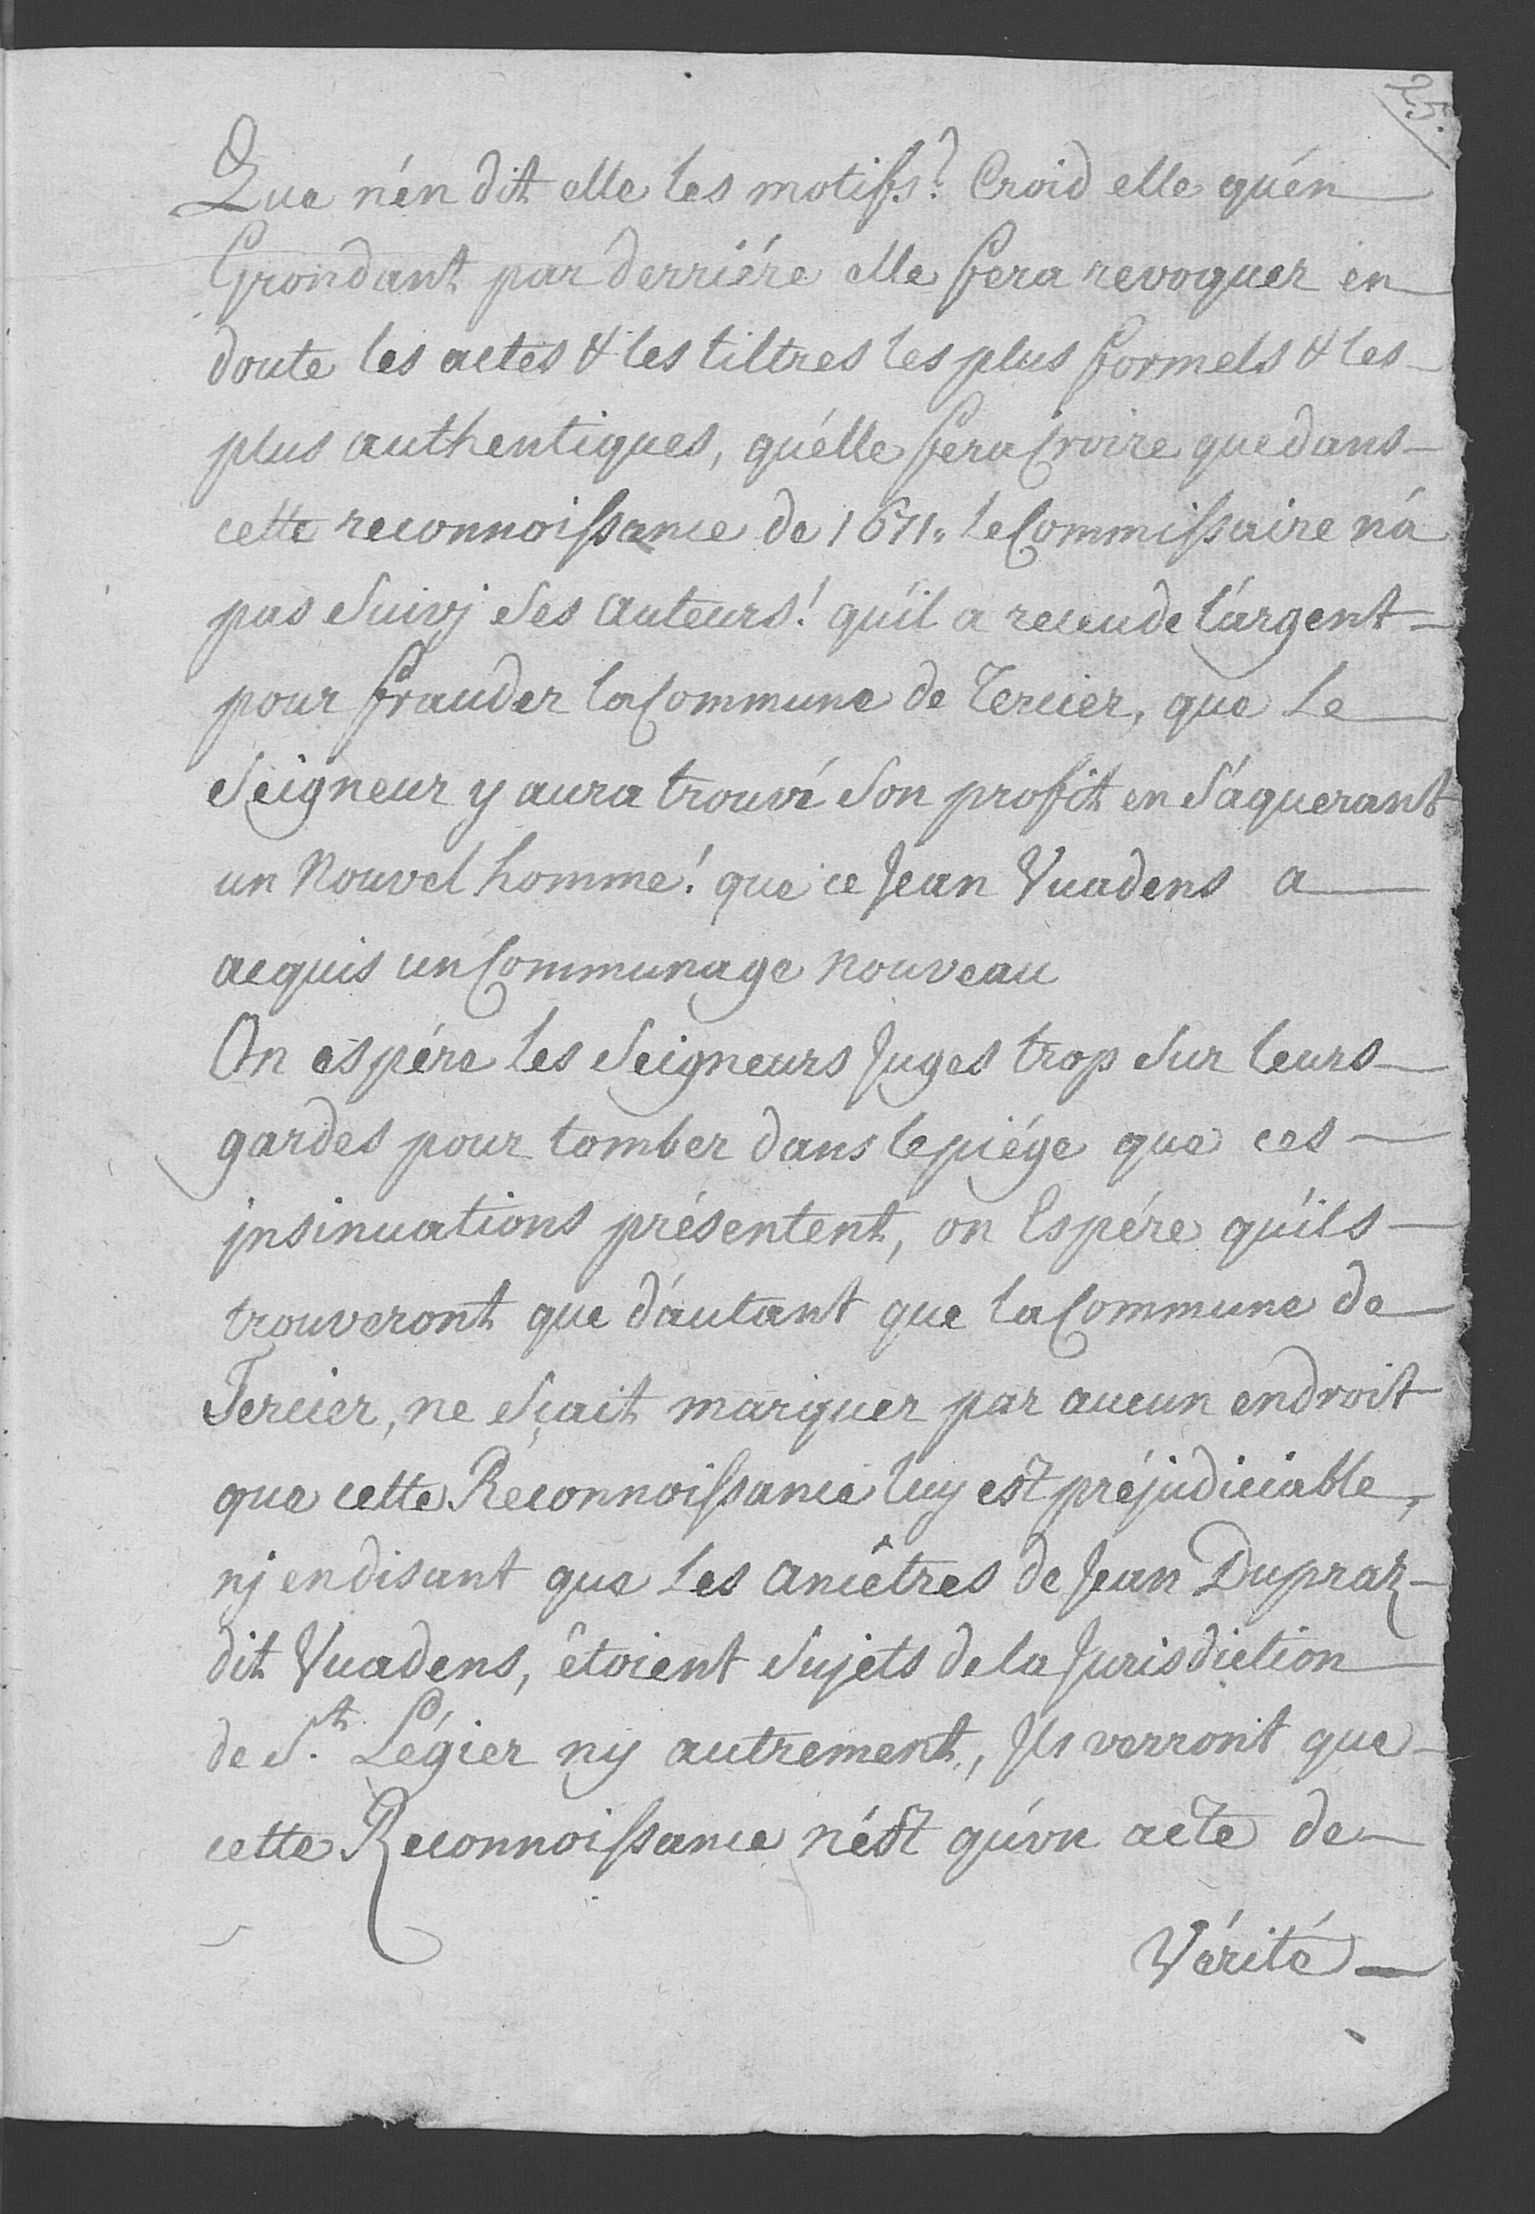 25.
Que n'én dit elle les motifs? Croid elle qu'én
Grondant par derriére elle fera revoquer en
doute les actes & les tiltres les plus formels & les
plus authentiques, qu'élle fera Croire que dans
cette reconnoissance de 1671. le Commissaire n'á
pas Suivj Ses Auteurs! qu'il a receu de l'árgent
pour frauder la Commune de Tercier, que Le
Seigneur y aura trouvé Son profit en S'áquerant
un Nouvel homme! que ce Jean Vuadens a
acquis un Communage nouveau
On espére les Seigneurs Juges trop Sur leurs
gardes pour tomber dans le piége que ces
jnsinuations présentent, on Espére qu'ils
trouveront que d'áutant que la Commune de
Tercier, ne Sçait marquer par aucun endroit
que cette Reconnoissance luy est préjudiciable,
nj en disant que Les Ancêtres de Jean Dupraz
dit Vuadens, êtoient Sujets de la Jurisdiction
de St. Légier ny autrement, Jls verront que
cette Reconnoissance n'ést qu'vn acte de
Vérité